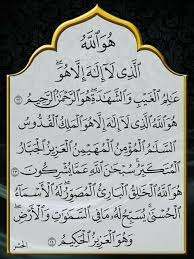 هُوَ اللَّهُ
الَّذِي لَا إِلَٰهَ إِلَّا هُوَ ۖ
عَالِمُ الْغَيْبِ وَالشَّهَادَةِ ۖ هُوَ الرَّحْمَٰنُ الرَّحِيمُ ﴿٢٢﴾
هُوَ اللَّهُ الَّذِي لَا إِلَٰهَ إِلَّا هُوَ الْمَلِكُ الْقُدُّوسُ
السَّلَامُ الْمُؤْمِنُ الْمُهَيْمِنُ الْعَزِيزُ الْجَبَّارُ
الْمُتَكَبِّرُ ۚ سُبْحَٰنَ اللَّهِ عَمَّا يُشْرِكُونَ ﴿٢٣﴾
هُوَ اللَّهُ الْخَالِقُ الْبَارِئُ الْمُصَوِّرُ ۖ لَهُ الْأَسْمَاءُ
الْحُسْنَىٰ ۚ يُسَبِّحُ لَهُ مَا فِي السَّمَٰوَاتِ وَالْأَرْضِ ۖ
وَهُوَ الْعَزِيزُ الْحَكِيمُ ﴿٢٤﴾
الحشر